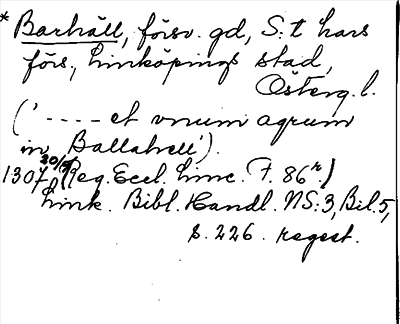 * Barhäll, försv. gd, S:t Lars
förs., Linköpings stad,
Österg. l.
(' ---- et unum agrum
in Ballahell').
30/9
1307 (Reg. Eccl. Linc. F. 86ʳ)
Link. Bibl. Handl. NS:3, Bil. 5,
s. 226. regest.